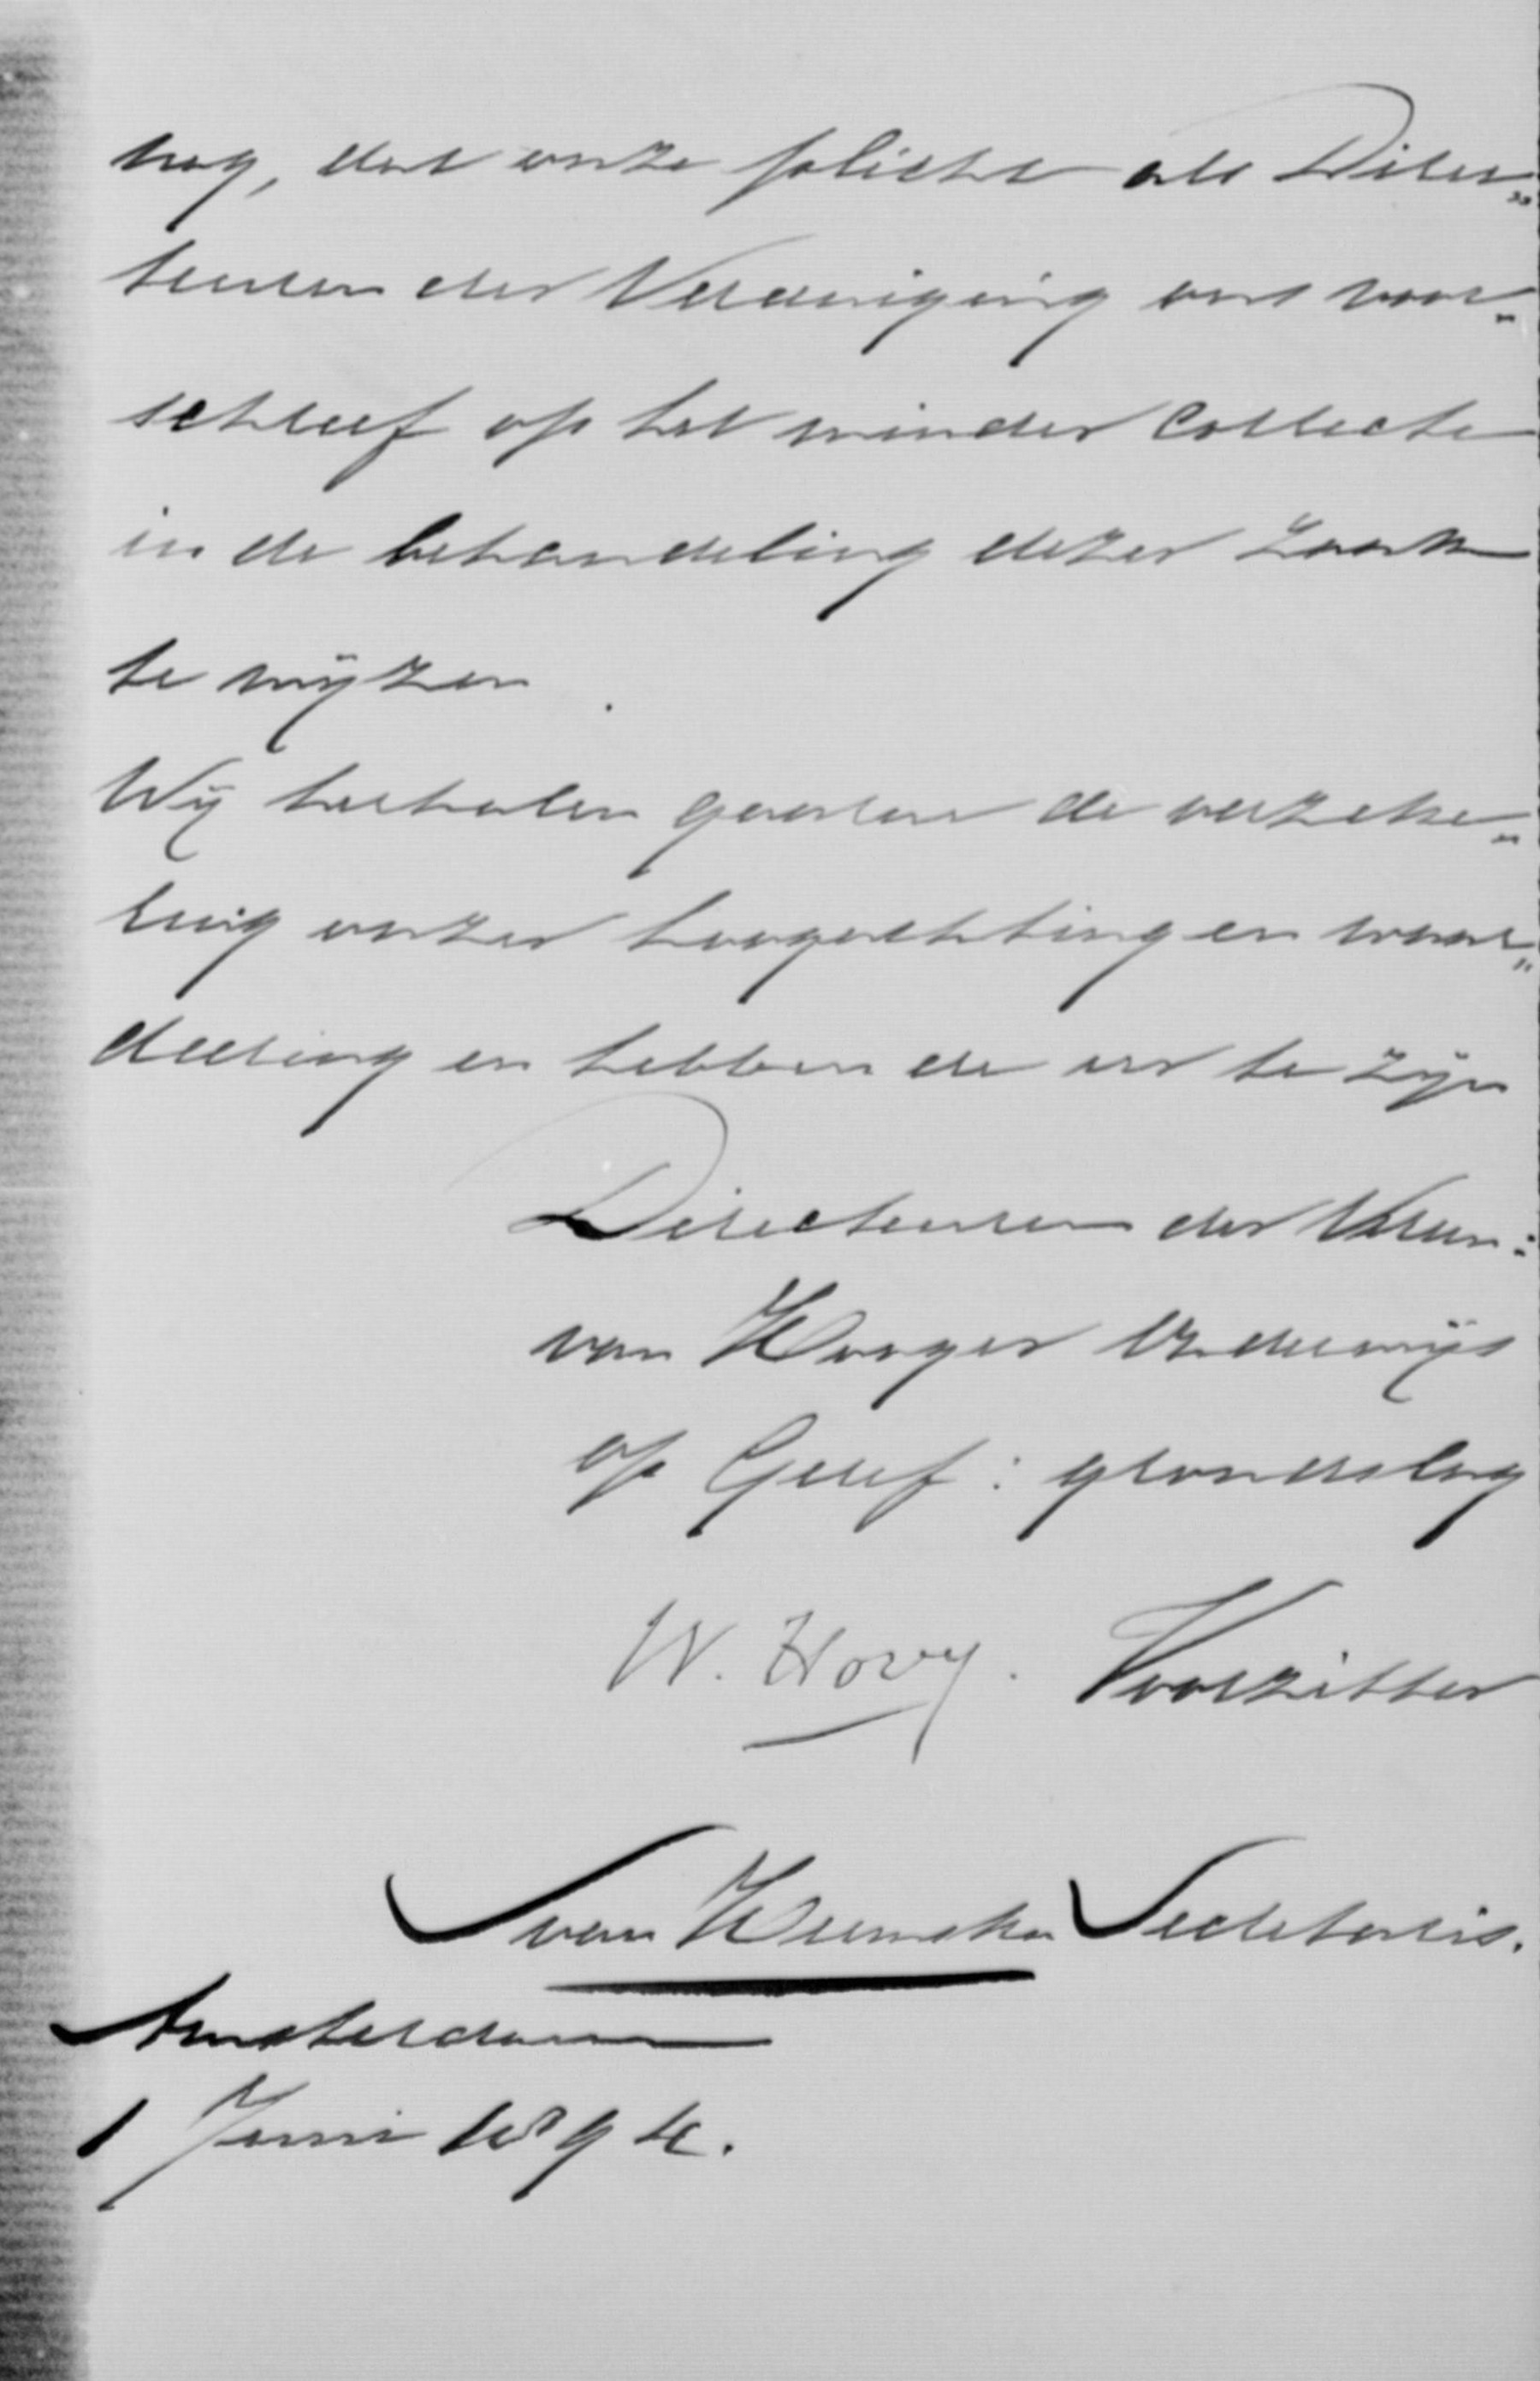 nog, dat onze plicht als Direc„
teuren der Vereeniging ons voor„
schreef op het minder correcte
in de behandeling dezer zaak
te wijzen.
Wij herhalen gaarne de verzeke„
ring onzer hoogachting en waar„
deering en hebben de eer te zijn
Directeuren der Vereen:
van Hooger Onderwijs
op Geref: grondslag
W. Hovy. Voorzitter
J van Heemstra Secretaris.
Amsterdam
1 Juni 1894.